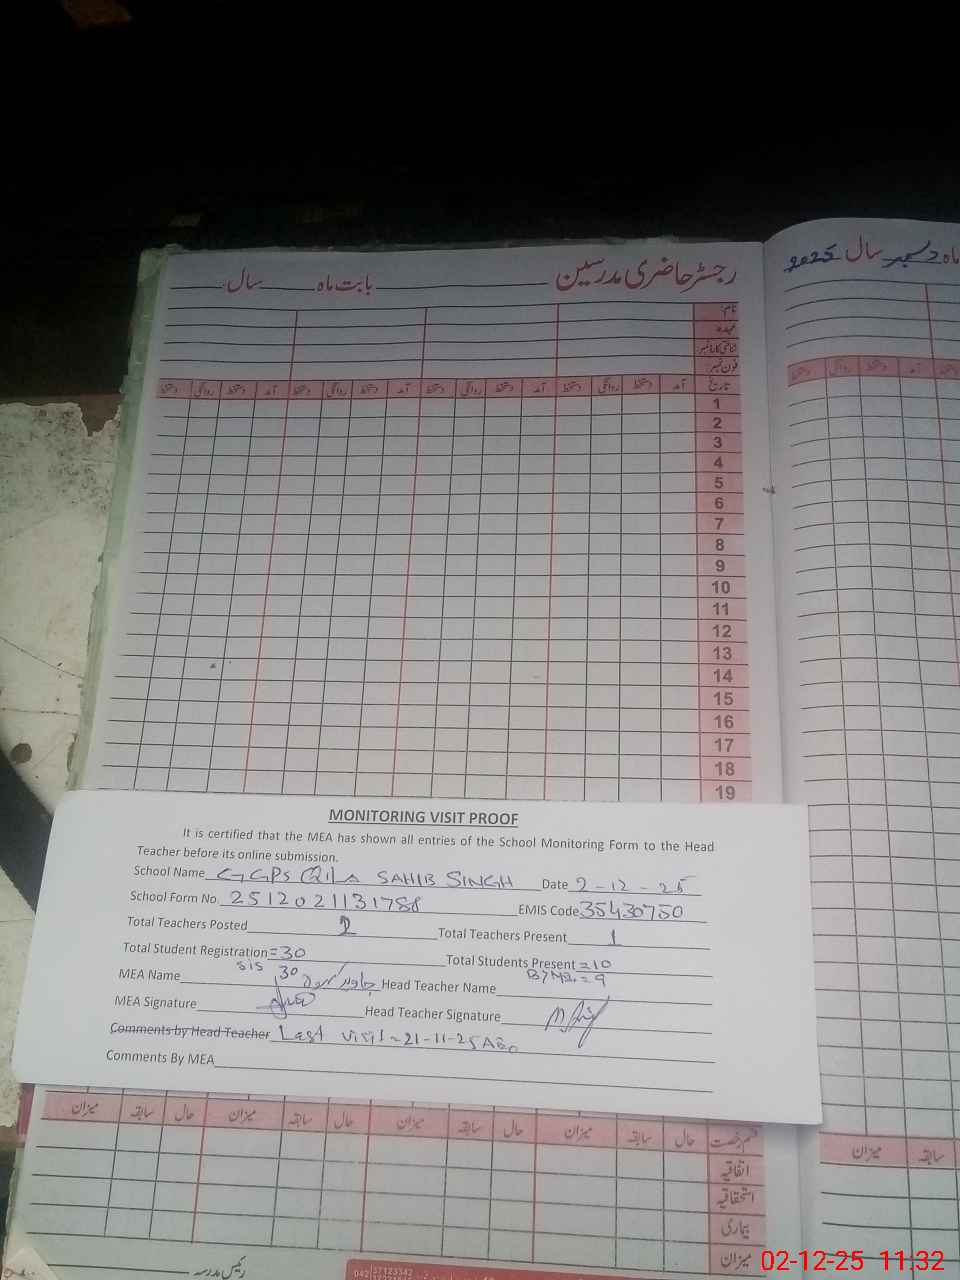 رجسٹر حاضری مدرسین بابت ماہ سال
ماہ دسمبر سال 2025
نام:
عہدہ
شناختی کارڈ نمبر
فون نمبر
تاریخ آمد دستخط روانگی دستخط آمد دستخط روانگی دستخط آمد دستخط روانگی دستخط آمد دستخط روانگی دستخط
دستخط آمد دستخط روانگی دستخط
1
2
3
4
5
6
7
8
9
10
11
12
13
14
15
16
17
18
19
MONITORING VISIT PROOF
It is certified that the MEA has shown all entries of the School Monitoring Form to the Head
Teacher before its online submission.
School Name GGPS QILA SAHIB SINGH Date 2-12-25
School Form No. 2512021131788 EMIS Code 35430750
Total Teachers Posted 2 Total Teachers Present 1
Total Student Registration =30 Total Students Present =10
SIS 30 = 9
MEA Name جاوید Head Teacher Name
MEA Signature Head Teacher Signature
Comments by Head Teacher Last visit = 21-11-25
Comments By MEA
قسم رخصت حال سابقہ میزان حال سابقہ میزان حال سابقہ میزان حال سابقہ میزان
سابقہ میزان
اتفاقیہ
استحقاقیہ
بیماری
میزان
رئیس مدرسہ
042 37123342
02-12-25 11:32